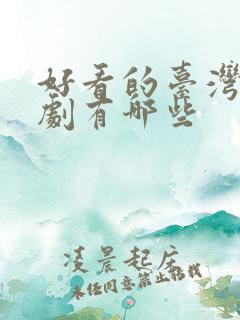 好看的臺灣
劇有哪些
凌晨起床
未经同意禁止转载